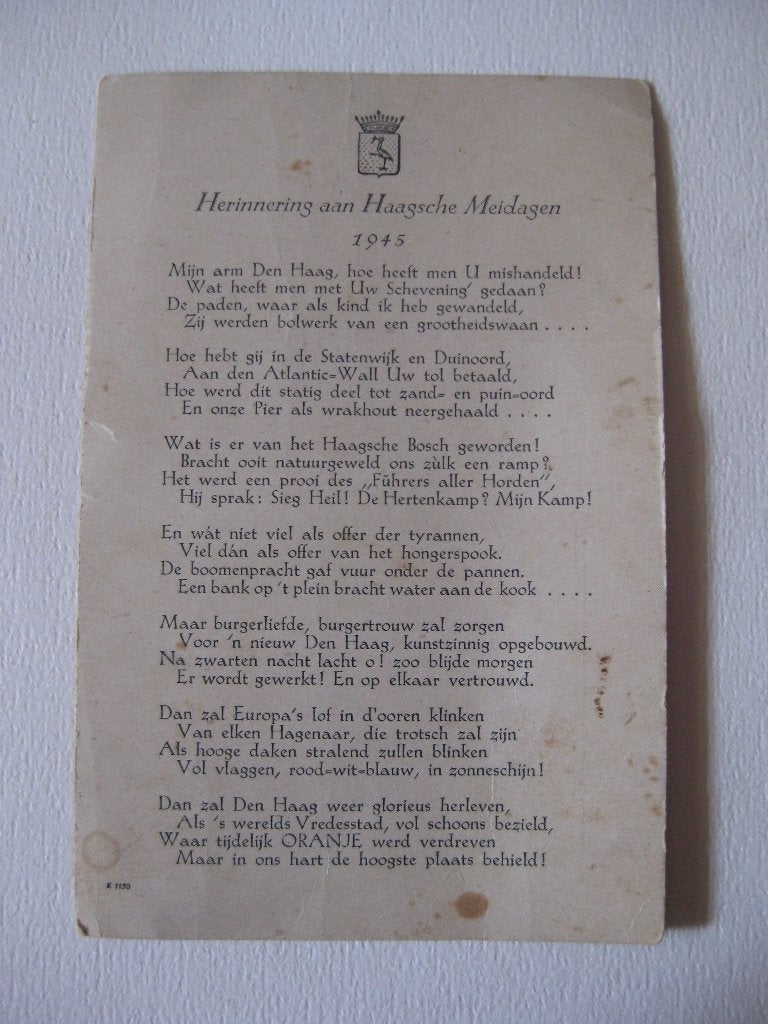 Herinnering aan Haagsche Meidagen
1945
Mijn arm Den Haag, hoe heeft men U mishandeld!
Wat heeft men met Uw Schevening' gedaan?
De paden, waar als kind ik heb gewandeld,
Zij werden bolwerk van een grootheidswaan . . . .
Hoe hebt gij in de Statenwijk en Duinoord,
Aan den Atlantic=Wall Uw tol betaald,
Hoe werd dit statig deel tot zand= en puin=oord
En onze Pier als wrakhout neergehaald . . . .
Wat is er van het Haagsche Bosch geworden!
Bracht ooit natuurgeweld ons zùlk een ramp?
Het werd een prooi des „Führers aller Horden”,
Hij sprak: Sieg Heil! De Hertenkamp? Mijn Kamp!
En wát niet viel als offer der tyrannen,
Viel dán als offer van het hongerspook.
De boomenpracht gaf vuur onder de pannen.
Een bank op 't plein bracht water aan de kook . . . .
Maar burgerliefde, burgertrouw zal zorgen
Voor 'n nieuw Den Haag, kunstzinnig opgebouwd.
Na zwarten nacht lacht o! zoo blijde morgen
Er wordt gewerkt! En op elkaar vertrouwd.
Dan zal Europa's lof in d'ooren klinken
Van elken Hagenaar, die trotsch zal zijn
Als hooge daken stralend zullen blinken
Vol vlaggen, rood=wit=blauw, in zonneschijn!
Dan zal Den Haag weer glorieus herleven,
Als 's werelds Vredesstad, vol schoons bezield,
Waar tijdelijk ORANJE werd verdreven
Maar in ons hart de hoogste plaats behield!
K 1130